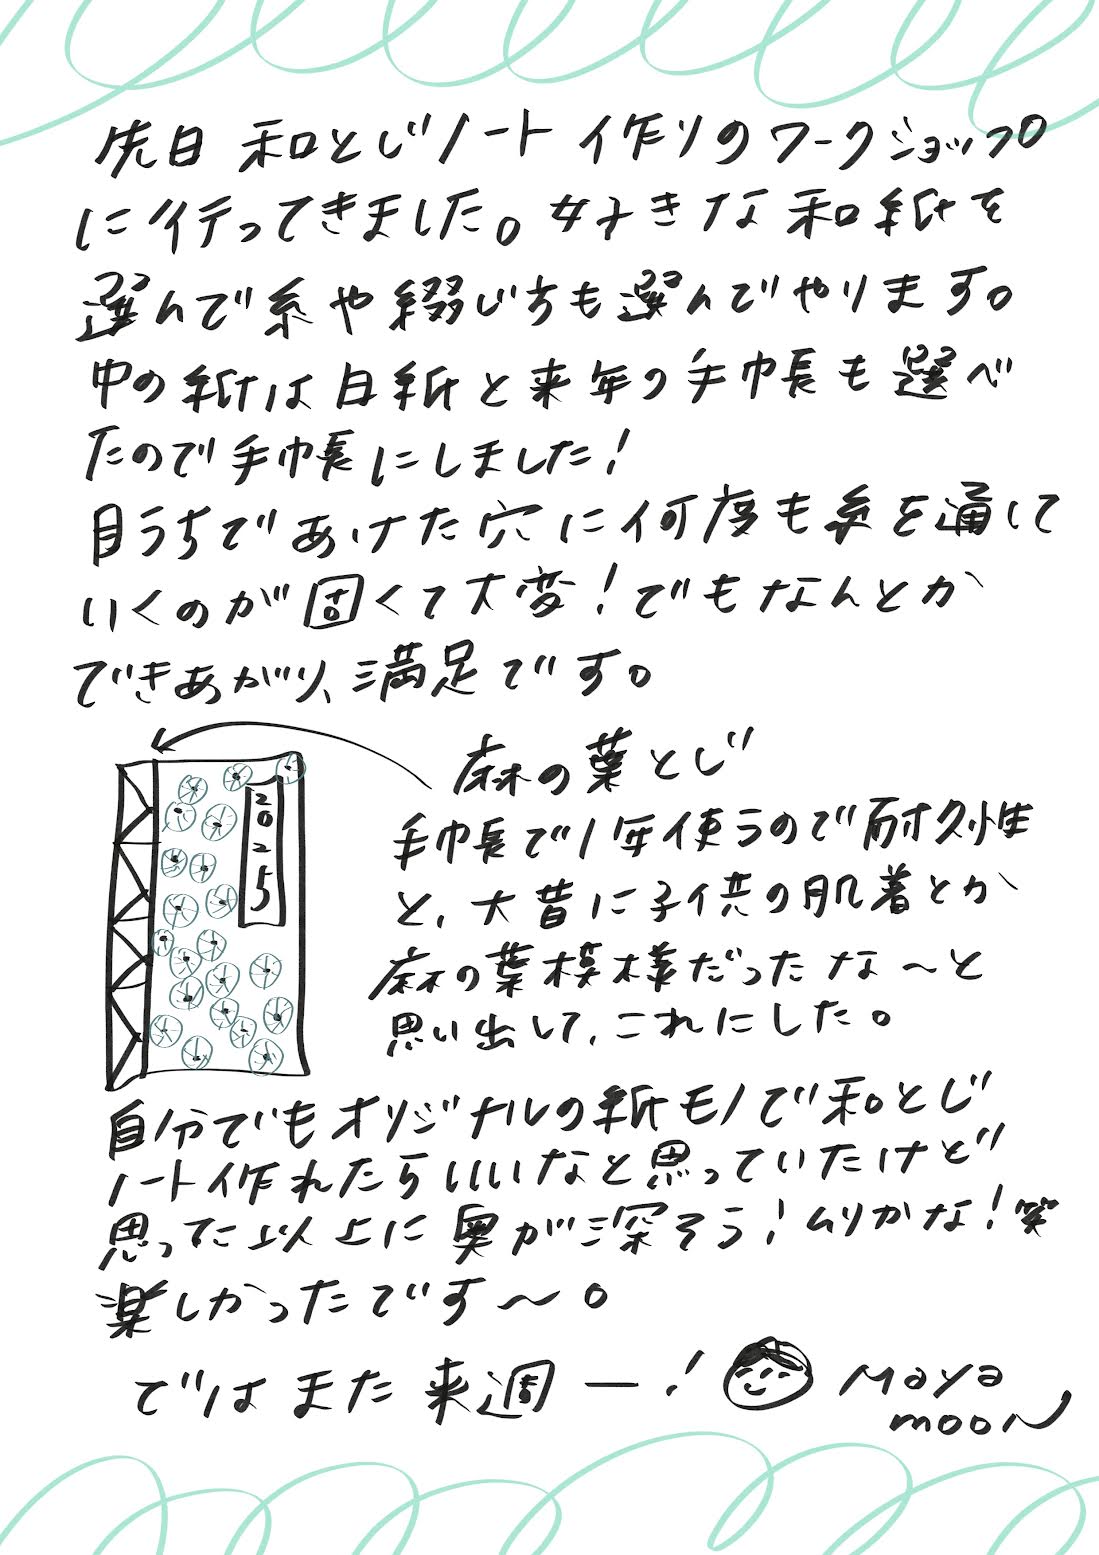 先日 和とじノート作りのワークショップ
に行ってきました。好きな和紙を
選んで糸や綴じ方も選んでやります。
中の紙は白紙と来年の手帳も選べ
たので手帳にしました!
目うちであけた穴に何度も糸を通して
いくのが固くて大変!でもなんとか
できあがり、満足です。
麻の葉とじ
2025
手帳で1年使うので耐久性
と、大昔に子供の肌着とか
麻の葉模様だったな〜と
思い出して、これにした。
自分でもオリジナルの紙モノで和とじ
ノート作れたらいいなと思っていたけど
思ってた以上に奥が深そう!ムリかな!笑
楽しかったです〜。
ではまた来週ー!
Maya
moon